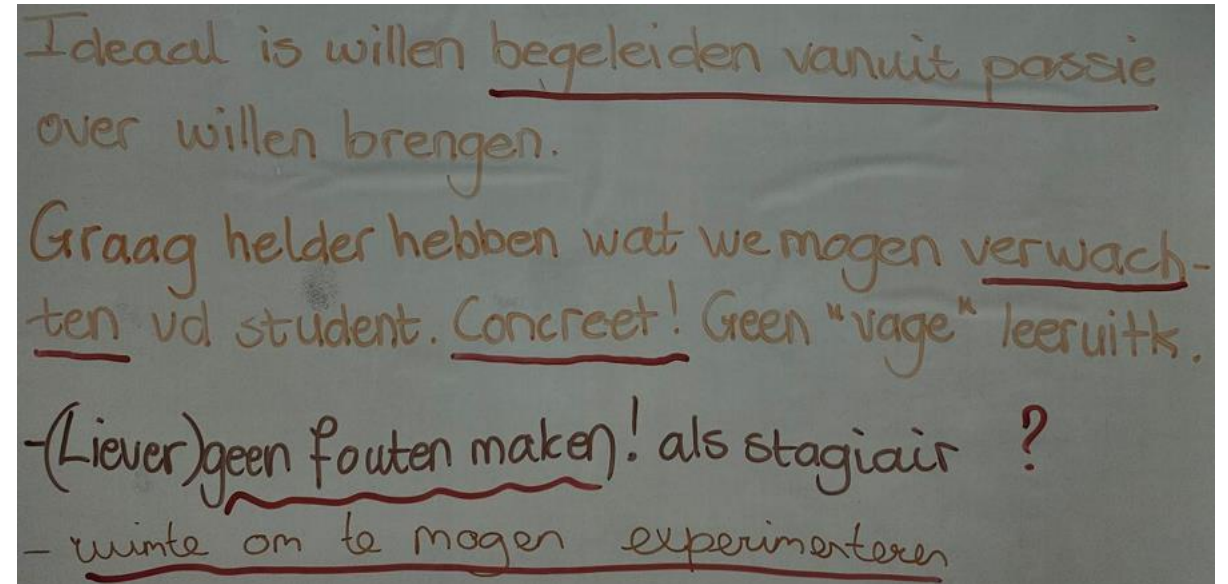 Ideaal is willen begeleiden vanuit passie
over willen brengen.
Graag helder hebben wat we mogen verwach-
ten vd student. Concreet! Geen "vage" leeruitk.
-(Liever) geen fouten maken! als stagiair ?
- ruimte om te mogen experimenteren